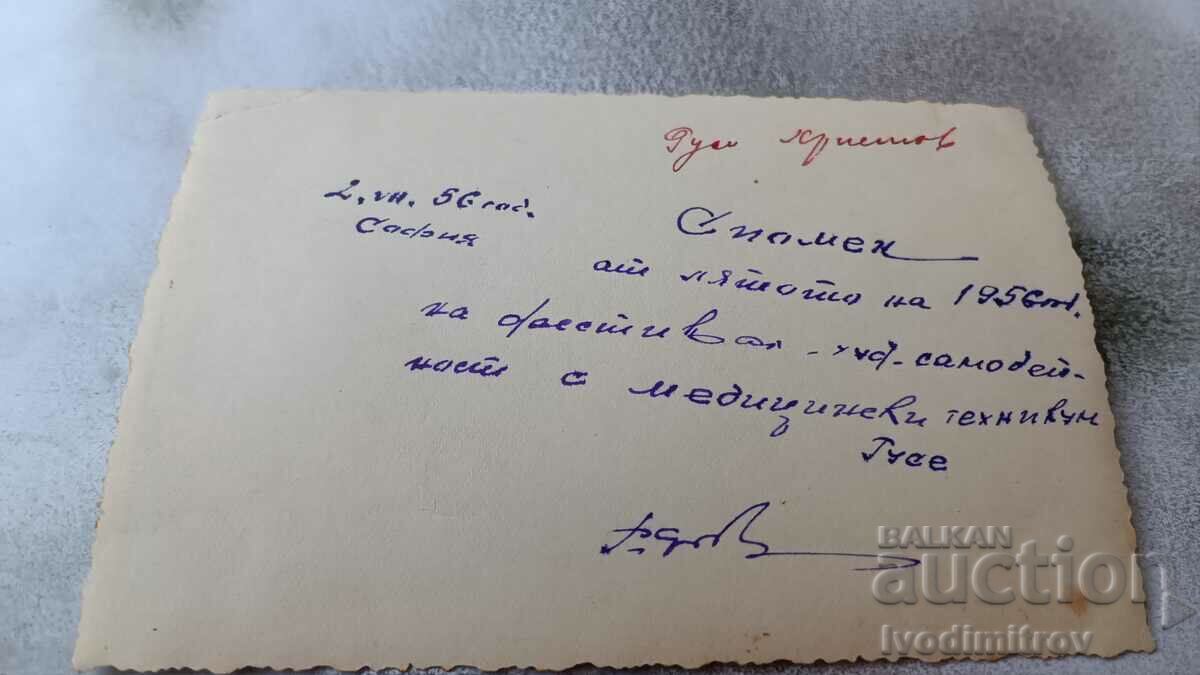 Руси Христов
2. VII. 56 год.
София
Спомен
от лятото на 1956 год.
на фестивал - худ. самодей-
ност с медицински техникум
Русе
BALKAN
auction
Ivodimitrov